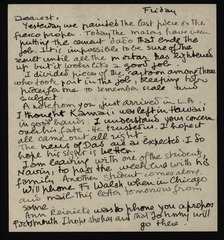 Friday
Dearest,
Yesterday we painted the last piece of the
fresco proper. Today the masons have been
putting the cement dado that ends the
job. It is impossible to be sure of the
result until all the mortar has lightened
up but it looks like a good job.
I divided pieces of the cartoon among those
who took part in the job, keeping four
pieces for me to remember scale and
subject.
A note from you just arrived in L.A.
I thought Kamaai was left in Hawaii
in good hands. I understand your concern
over his fate & transfer. I hope it
all came out all right.
The news of Dad are as expected. I do
hope his sight is better.
I am leaving with one of the students,
Mavin, to pass the week end with his
family. Another student comes along
Will phone Fr Walsh when in Chicago
and mail this letter tomorrow from
same.
Ann Reinicke was to phone you a propos
Portsmouth. I hope she has and that Johnny will
go there.